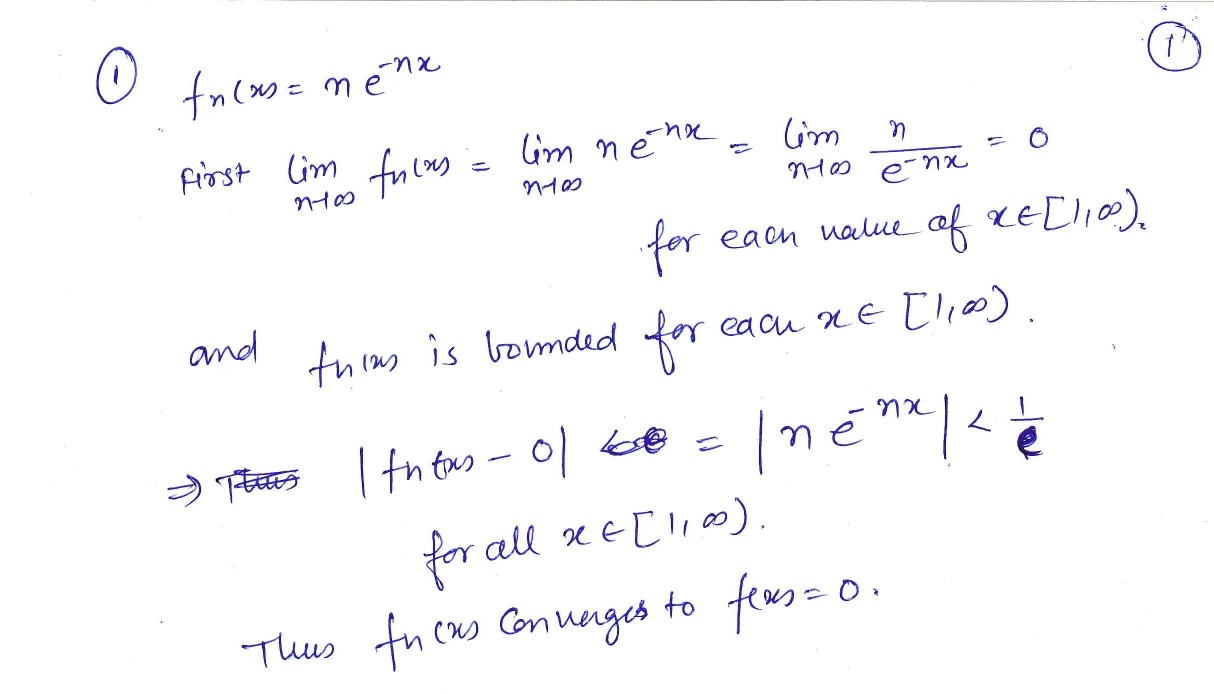 ① fn(x) = n e^-nx ①
First lim n→∞ fn(x) = lim n→∞ n e^-nx = lim n→∞ n / e^-nx = 0
for each value of x ∈ [1,∞).
and fn(x) is bounded for each x ∈ [1,∞).
⇒ | fn(x) - 0 | = | n e^-nx | < 1/e
for all x ∈ [1,∞).
Thus fn(x) Converges to f(x) = 0.